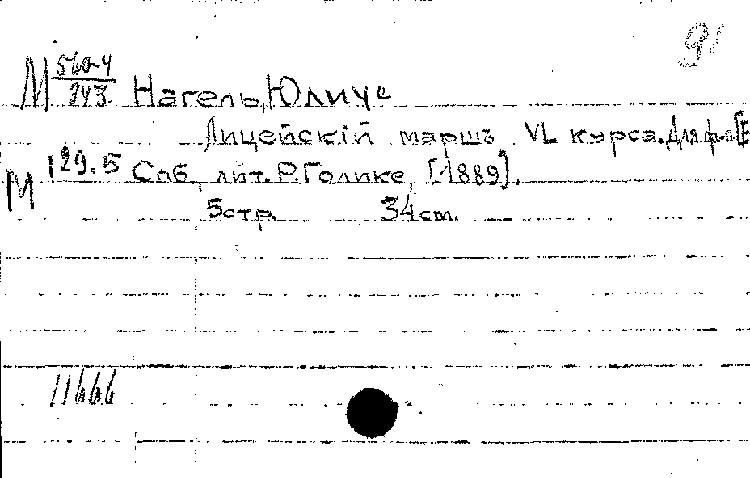 91
М 560-4/243 Нагель, Юлиус
Лицейскій маршъ VL курса. Для ф.-п.
М 129.5 Спб., лит. Р. Голике, [1889].
5 стр. 34 cm.
11666